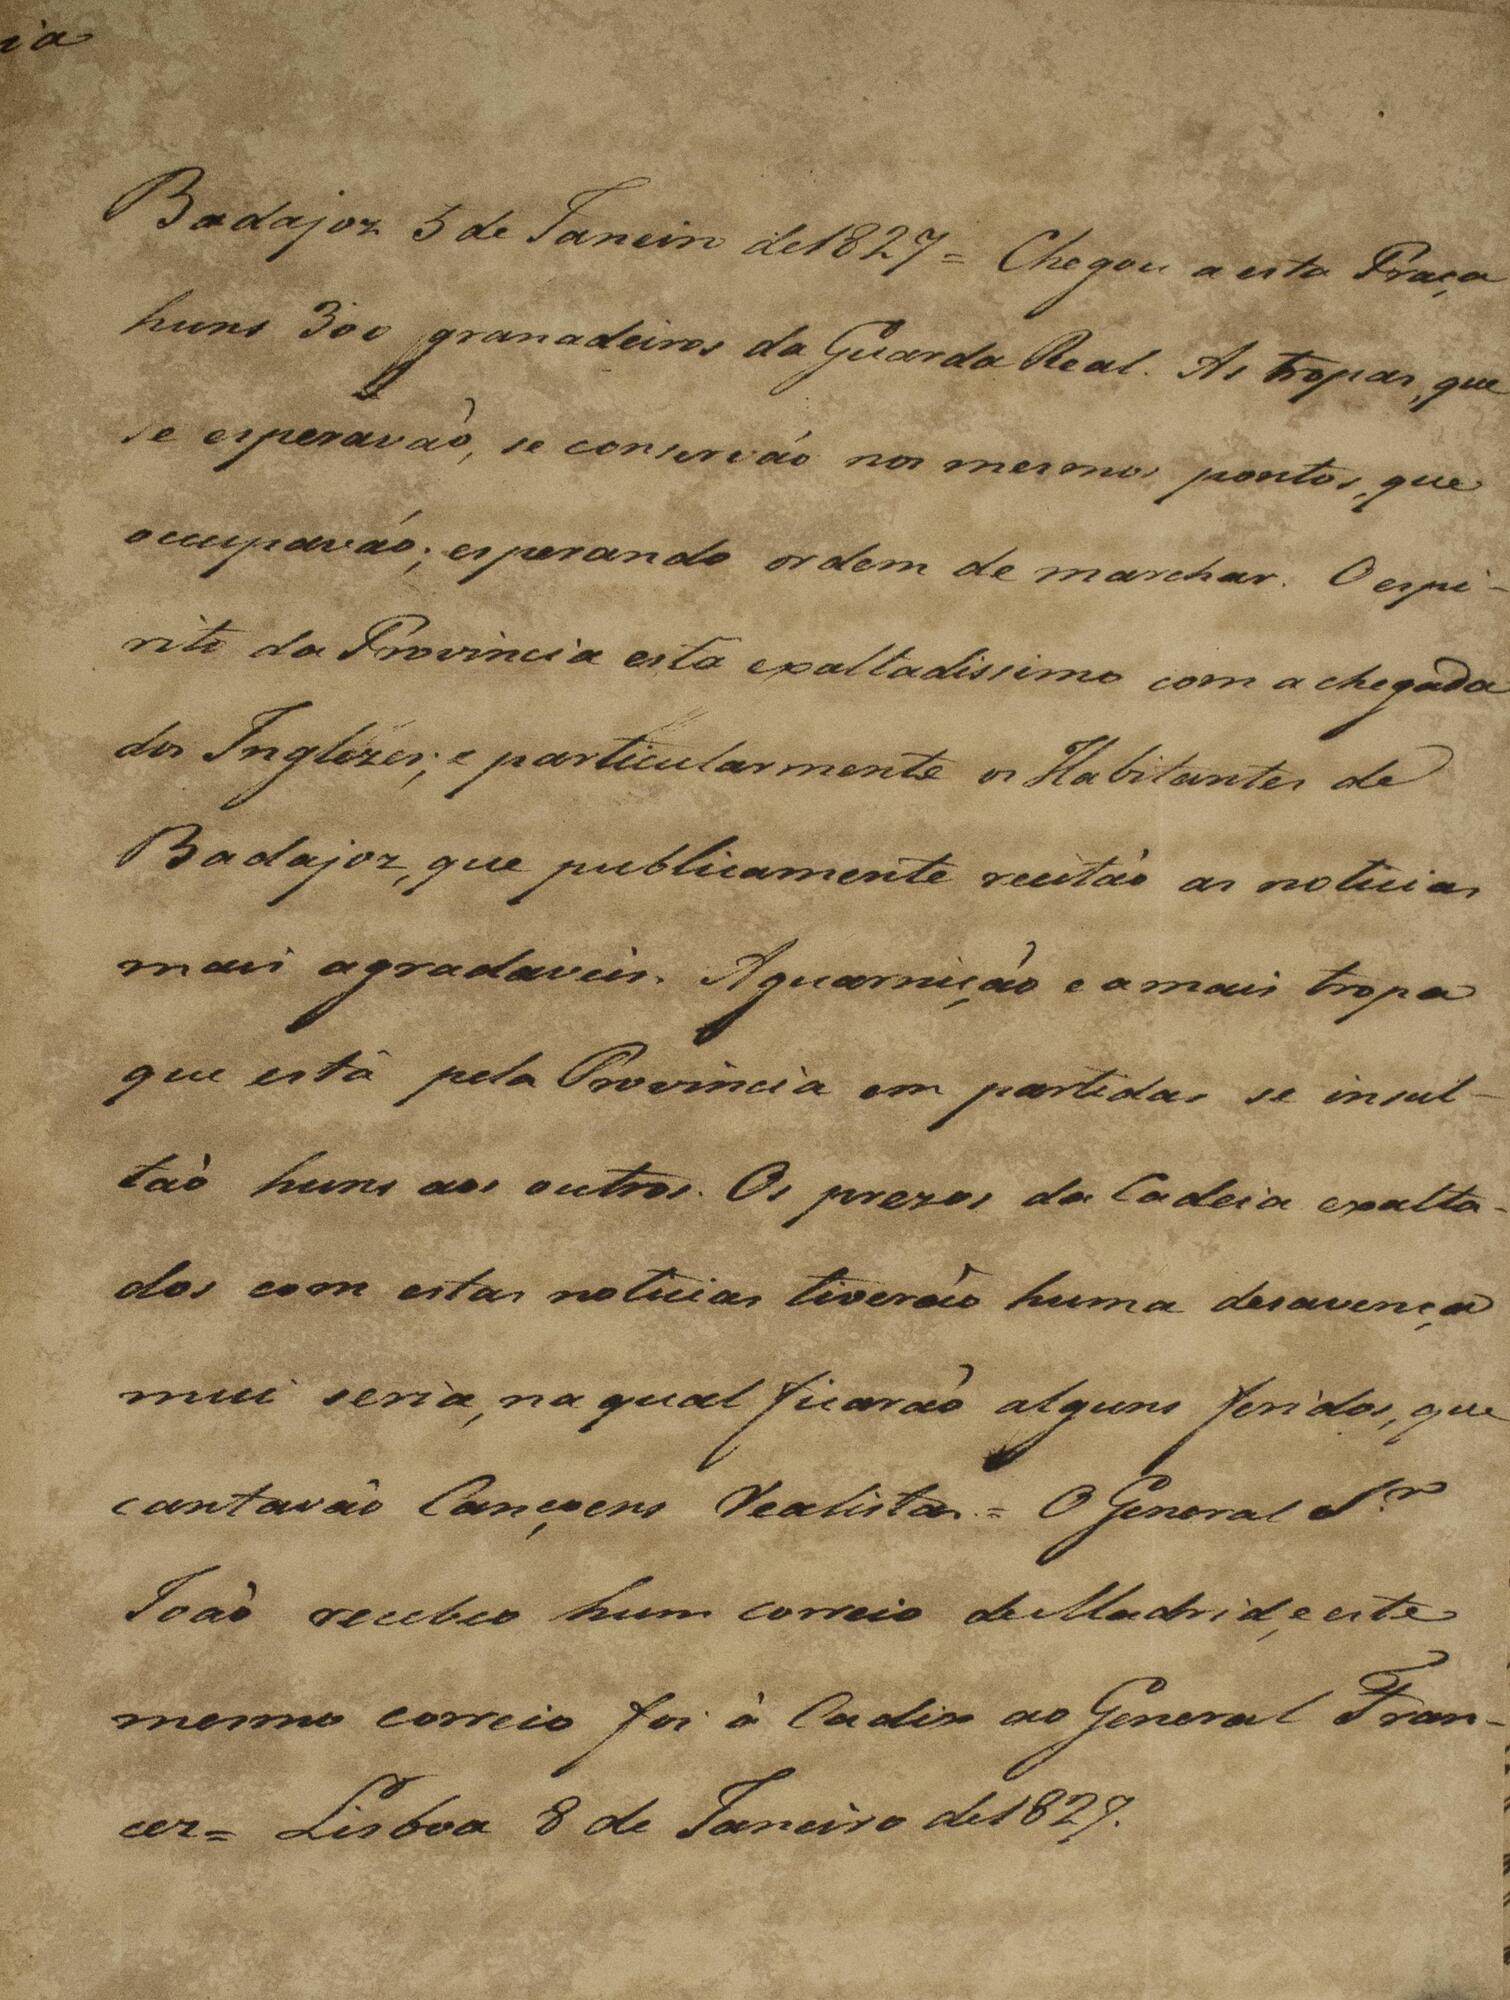 ia
Badajoz 5 de Janeiro de 1827 = Chegou a esta Praça
huns 300 granadeiros da Guarda Real. As tropas, que
se esperavão, se conservão nos mesmos pontos, que
occupavão; esperando ordem de marchar. O espi-
rito da Provincia esta exaltadissimo com a chegada
dos Inglezes; e particularmente os Habitantes de
Badajoz, que publicamente recitão as noticias
mais agradaveis. A guarnição e a mais tropa
que está pela Provincia em partidas se insul-
tão huns aos outros. Os prezos da Cadeia exalta-
dos com estas noticias tiverão huma desavença
mui seria, na qual ficarão alguns feridos, que
cantavão Cançoens Realistas. = O General S.r
João recebeo hum correio de Madrid, e este
mesmo correio foi à Cadix ao General Fran-
cez = Lisboa 8 de Janeiro de 1827.